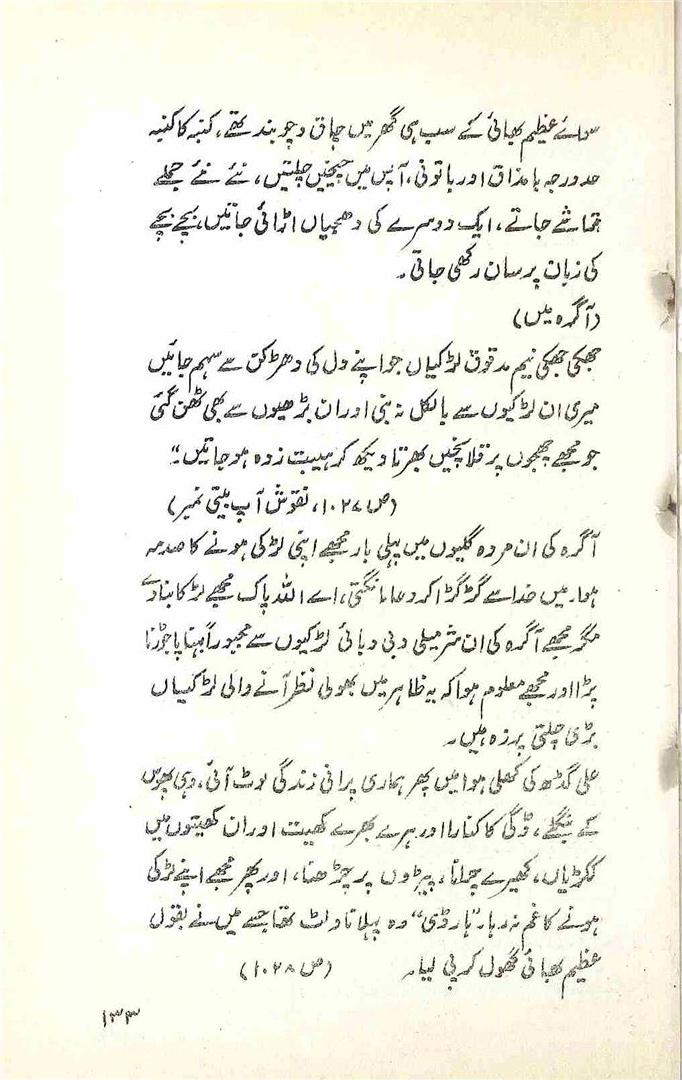 سوائے عظیم بھائی کے سب ہی گھر میں چاق و چوبند تھے، کنبہ کا کنبہ
حد درجہ با مذاق اور باتونی، آپس میں چخیں چلتیں، نئے نئے جملے
تراشے جاتے، ایک دوسرے کی دھجیاں اڑائی جاتیں، بچے بچے
کی زبان پر سان رکھی جاتی۔
(آگرہ میں)
جھکی جھکی نیم مدقوق لڑکیاں جو اپنے دل کی دھڑکن سے سہم جائیں
میری ان لڑکیوں سے بالکل نہ بنی اور ان بڑھیوں سے بھی ٹھن گئی
جو مجھے چھجوں پر قلانچیں بھرتا دیکھ کر ہیبت زدہ ہو جاتیں۔"
(ص ۱۰۲۷، نقوش آپ بیتی نمبر)
آگرہ کی ان مردہ گلیوں میں پہلی بار مجھے اپنی لڑکی ہونے کا صدمہ
ہوا۔ میں خدا سے گڑگڑا کر دعا مانگتی، اے اللہ پاک مجھے لڑکا بنا دے
مگر مجھے آگرہ کی ان شرمیلی دبی دبائی لڑکیوں سے مجبوراً بہناپا جوڑنا
پڑا اور مجھے معلوم ہوا کہ بہ ظاہر میں بھولی نظر آنے والی لڑکیاں
بڑی چلتی پرزہ ہیں۔
علی گڈھ کی کھلی ہوا میں پھر ہماری پرانی زندگی لوٹ آئی، وہی پھوس
کے بنگلے، ڈگی کا کنارا اور ہرے بھرے کھیت اور ان کھیتوں میں
ککڑیاں، کھیرے چرانا، پیڑوں پر چڑھنا، اور پھر مجھے اپنے لڑکی
ہونے کا غم نہ رہا۔ "ہارڈی" وہ پہلا ناولٹ تھا جسے میں نے بقول
عظیم بھائی گھول کر پی لیا۔ (ص ۱۰۲۸)
۱۳۳